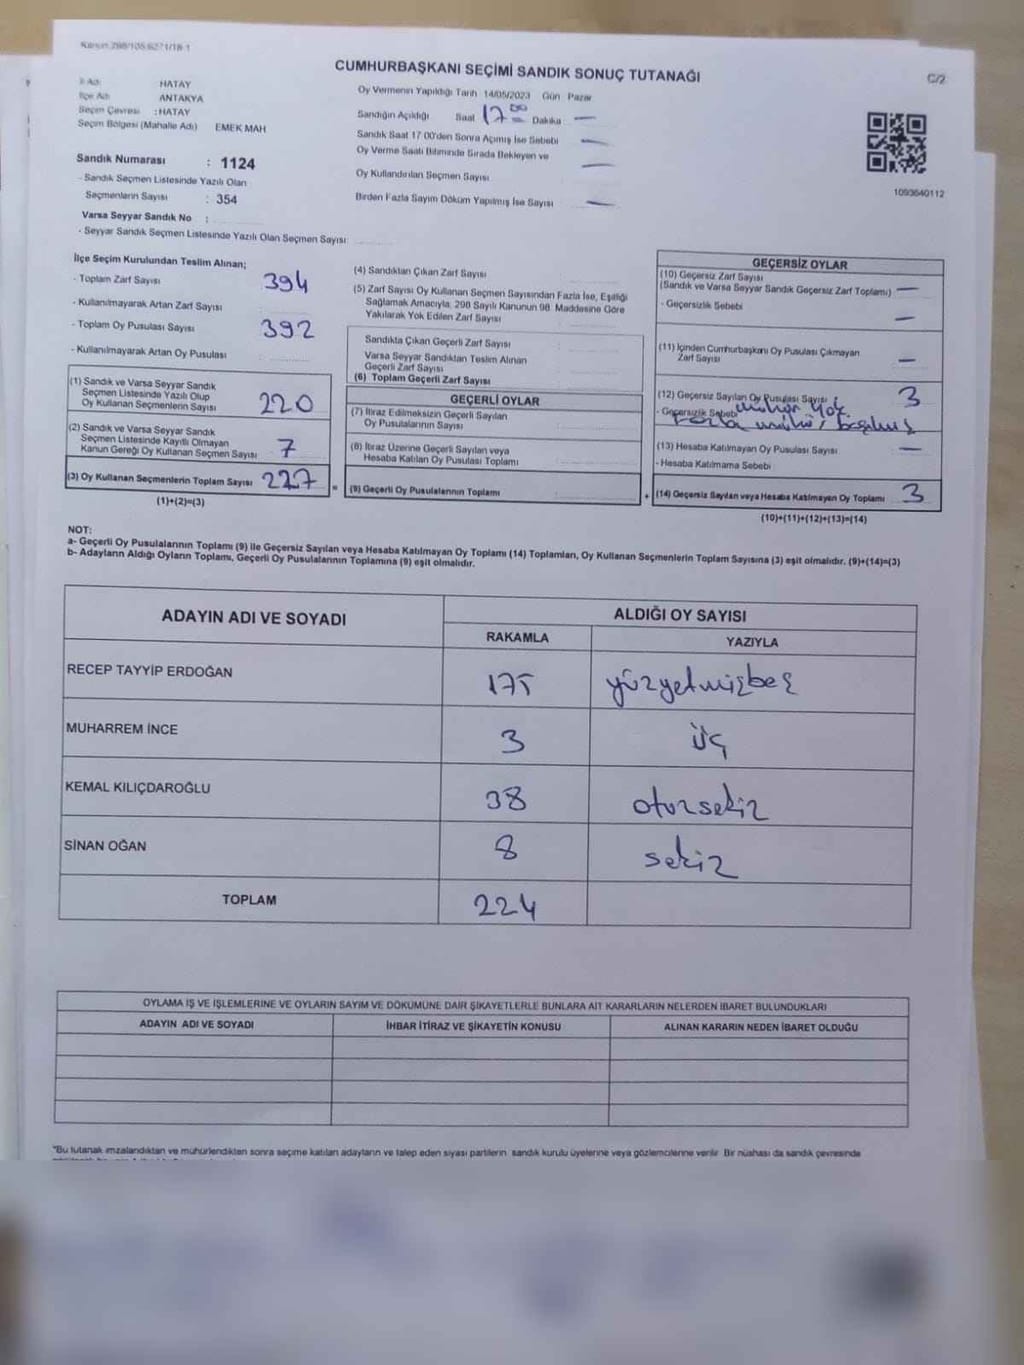 Kanun 298/105.6271/18-1
CUMHURBAŞKANI SEÇİMİ SANDIK SONUÇ TUTANAĞI
C/2
İl Adı HATAY
İlçe Adı ANTAKYA
Seçim Çevresi : HATAY
Seçim Bölgesi (Mahalle Adı) EMEK MAH
Sandık Numarası : 1124
- Sandık Seçmen Listesinde Yazılı Olan
Seçmenlerin Sayısı : 354
Varsa Seyyar Sandık No :
- Seyyar Sandık Seçmen Listesinde Yazılı Olan Seçmen Sayısı:
Oy Vermenin Yapıldığı Tarih 14/05/2023 Gün Pazar
Sandığın Açıldığı Saat 17 00 Dakika —
Sandık Saat 17 00'den Sonra Açımış İse Sebebi —
Oy Verme Saati Bitiminde Sırada Bekleyen ve
Oy Kullandırılan Seçmen Sayısı —
Birden Fazla Sayım Döküm Yapılmış İse Sayısı —
1093640112
İlçe Seçim Kurulundan Teslim Alınan;
- Toplam Zarf Sayısı 394
- Kullanılmayarak Artan Zarf Sayısı
- Toplam Oy Pusulası Sayısı 392
- Kullanılmayarak Artan Oy Pusulası
(1) Sandık ve Varsa Seyyar Sandık
Seçmen Listesinde Yazılı Olup
Oy Kullanan Seçmenlerin Sayısı 220
(2) Sandık ve Varsa Seyyar Sandık
Seçmen Listesinde Kayıtlı Olmayan
Kanun Gereği Oy Kullanan Seçmen Sayısı 7
(3) Oy Kullanan Seçmenlerin Toplam Sayısı 227
(1)+(2)=(3)
(4) Sandıktan Çıkan Zarf Sayısı
(5) Zarf Sayısı Oy Kullanan Seçmen Sayısından Fazla İse, Eşitliği
Sağlamak Amacıyla, 298 Sayılı Kanunun 98. Maddesine Göre
Yakılarak Yok Edilen Zarf Sayısı
Sandıkta Çıkan Geçerli Zarf Sayısı
Varsa Seyyar Sandıktan Teslim Alınan
Geçerli Zarf Sayısı
(6) Toplam Geçerli Zarf Sayısı
GEÇERLİ OYLAR
(7) İtiraz Edilmeksizin Geçerli Sayılan
Oy Pusulasının Sayısı
(8) İtiraz Üzerine Geçerli Sayılan veya
Hesaba Katılan Oy Pusulası Toplamı
= (9) Geçerli Oy Pusulalarının Toplamı
GEÇERSİZ OYLAR
(10) Geçersiz Zarf Sayısı
(Sandık ve Varsa Seyyar Sandık Geçersiz Zarf Toplamı) —
- Geçersizlik Sebebi —
(11) İçinden Cumhurbaşkanı Oy Pusulası Çıkmayan
Zarf Sayısı —
(12) Geçersiz Sayılan Oy Pusulası Sayısı 3
- Geçersizlik Sebebi mühür yok
fazla mühür basılmış
(13) Hesaba Katılmayan Oy Pusulası Sayısı —
- Hesaba Katılmama Sebebi
+ (14) Geçersiz Sayılan veya Hesaba Katılmayan Oy Toplamı 3
(10)+(11)+(12)+(13)=(14)
NOT:
a- Geçerli Oy Pusulalarının Toplamı (9) ile Geçersiz Sayılan veya Hesaba Katılmayan Oy Toplamı (14) Toplamları, Oy Kullanan Seçmenlerin Toplam Sayısına (3) eşit olmalıdır. (9)+(14)=(3)
b- Adayların Aldığı Oyların Toplamı, Geçerli Oy Pusulalarının Toplamına (9) eşit olmalıdır.
ADAYIN ADI VE SOYADI ALDIĞI OY SAYISI
RAKAMLA YAZIYLA
RECEP TAYYİP ERDOĞAN 175 yüzyetmişbeş
MUHARREM İNCE 3 üç
KEMAL KILIÇDAROĞLU 38 otuzsekiz
SİNAN OĞAN 8 sekiz
TOPLAM 224
OYLAMA İŞ VE İŞLEMLERİNE VE OYLARIN SAYIM VE DÖKÜMÜNE DAİR ŞİKAYETLERLE BUNLARA AİT KARARLARIN NELERDEN İBARET BULUNDUKLARI
ADAYIN ADI VE SOYADI İHBAR İTİRAZ VE ŞİKAYETİN KONUSU ALINAN KARARIN NEDEN İBARET OLDUĞU
*Bu tutanak imzalandıktan ve mühürlendikten sonra seçime katılan adayların ve talep eden siyasi partilerin sandık kurulu üyelerine veya gözlemcilerine verilir. Bir nüshası da sandık çevresinde